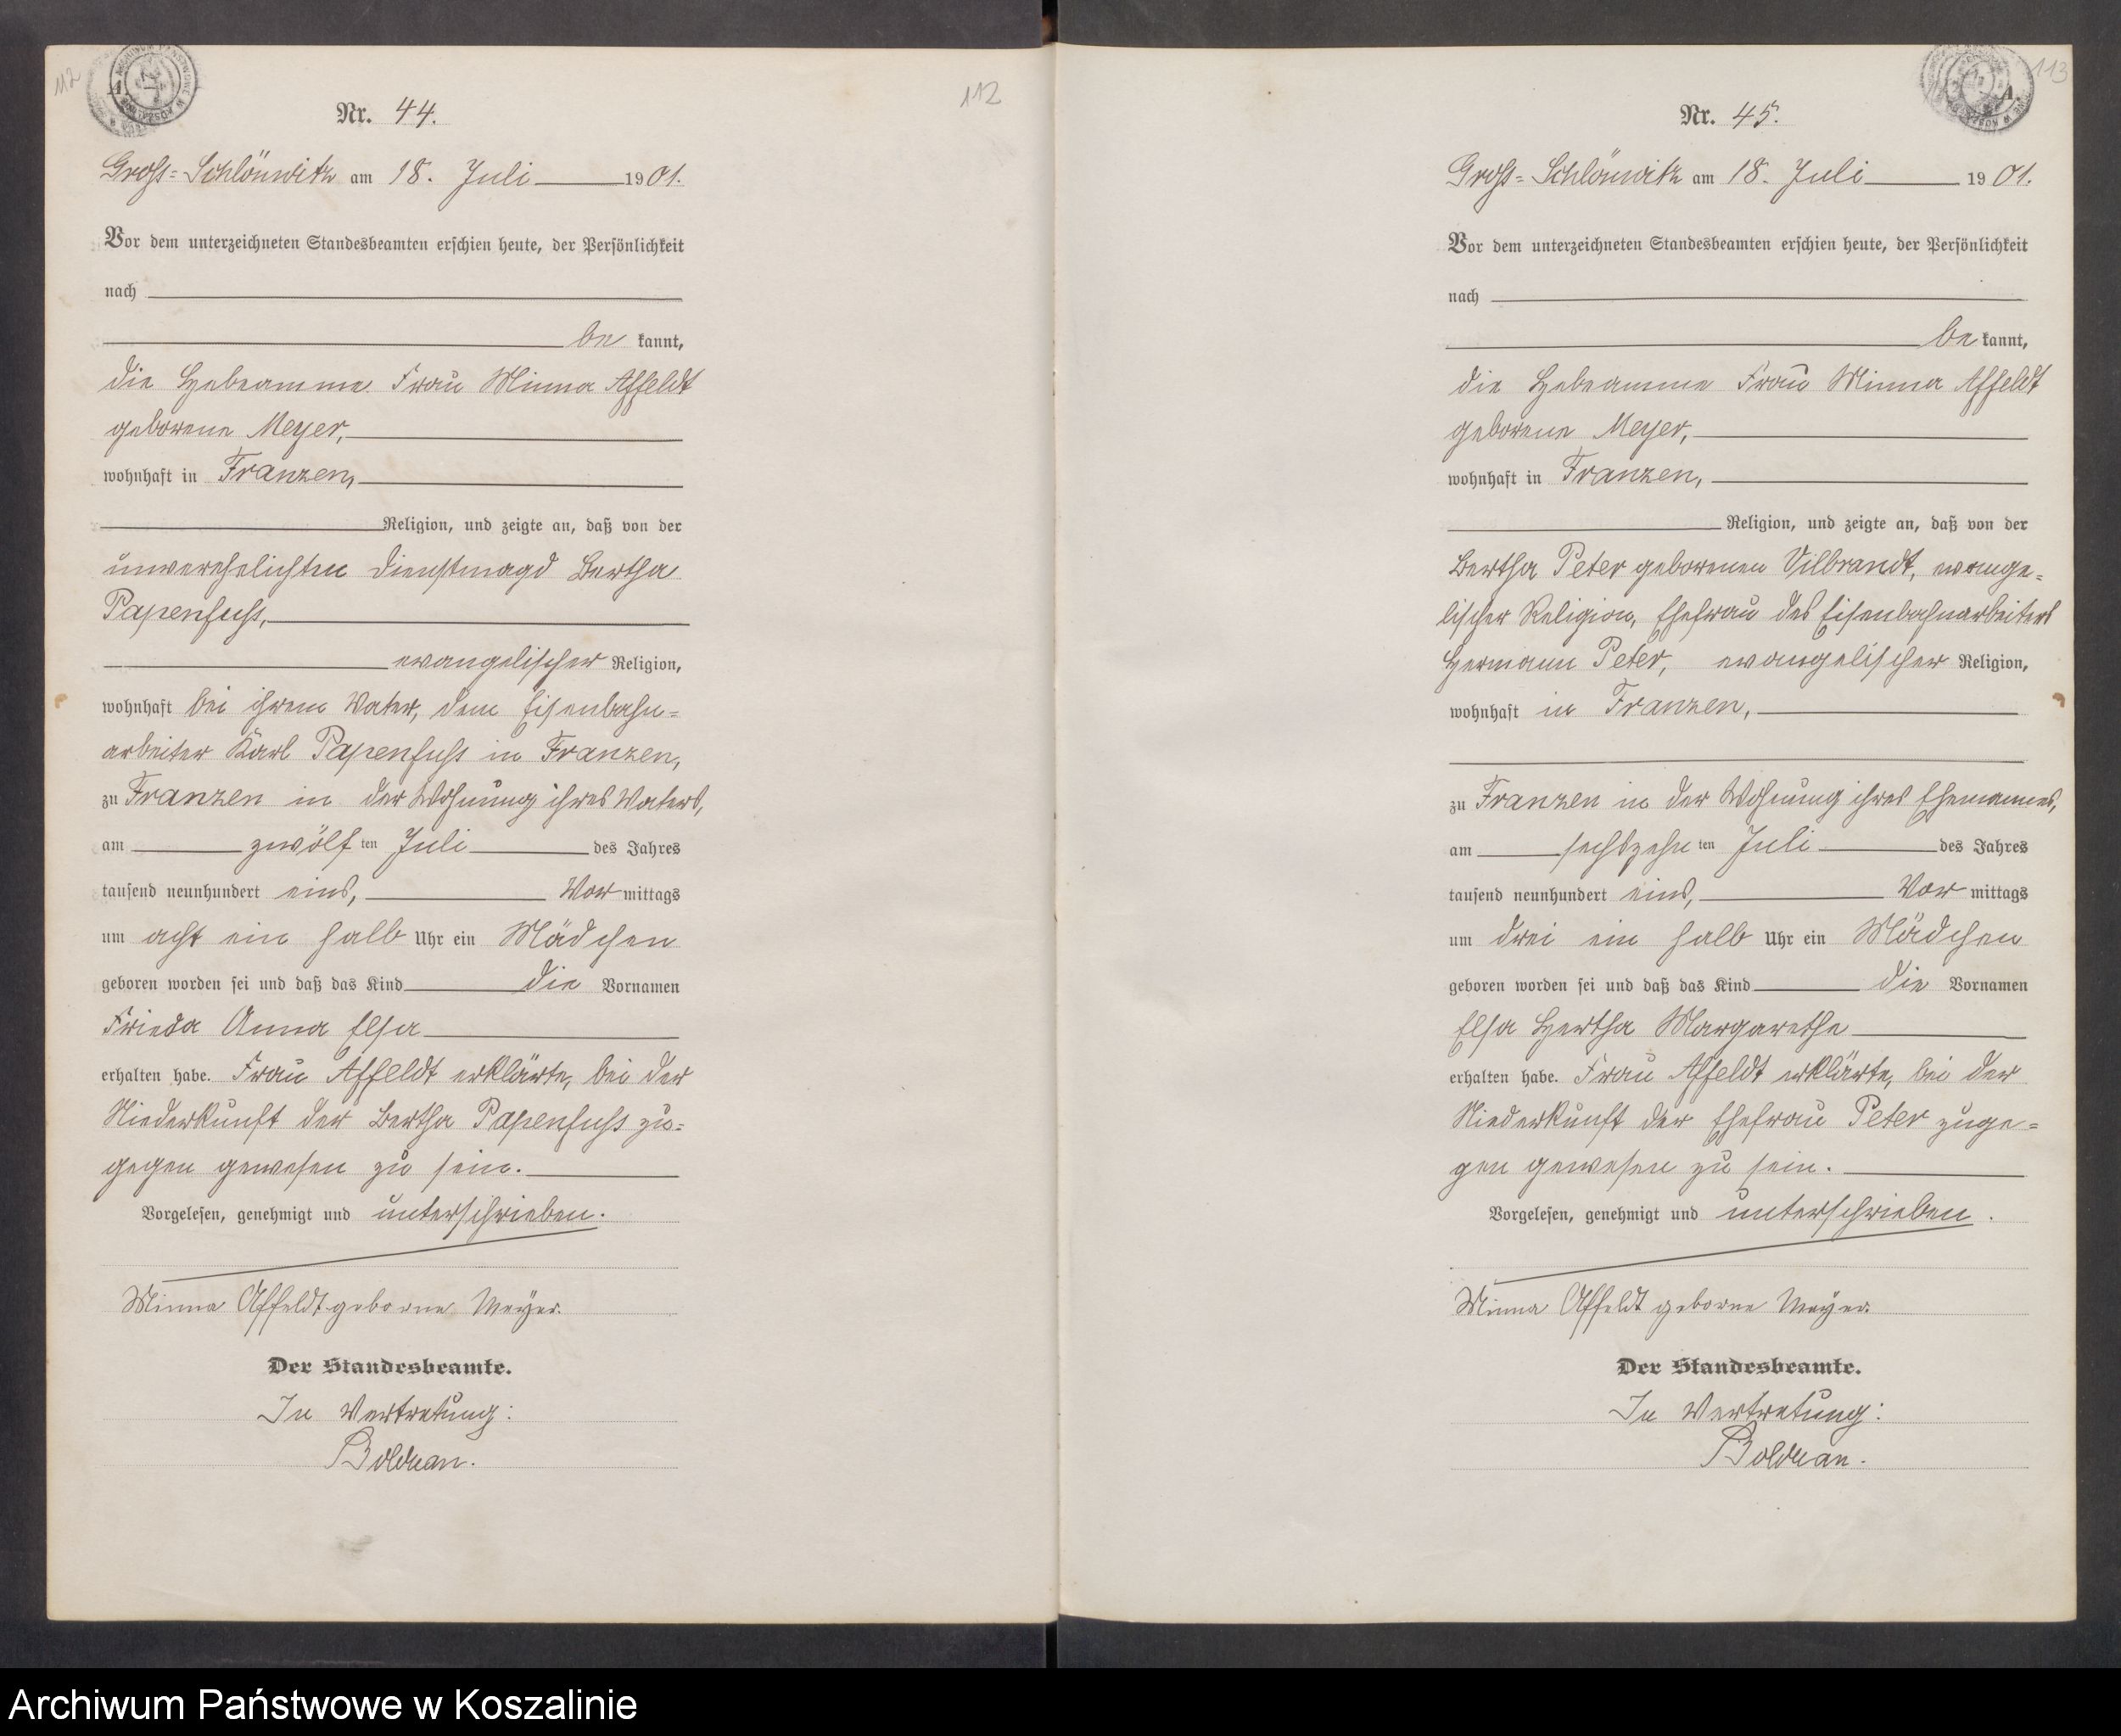 112
A.
Nr. 44.
112
Gross-Schlönwitz am 18. Juli 1901.
Vor dem unterzeichneten Standesbeamten erschien heute, der Persönlichkeit
nach
be kannt,
die Hebeamme Frau Minna Affeldt
geborene Meyer,
wohnhaft in Franzen,
Religion, und zeigte an, daß von der
unverehelichten Dienstmagd Bertha
Papenfuss,
evangelischer Religion,
wohnhaft bei ihrem Vater, dem Eisenbahn-
arbeiter Karl Papenfuss in Franzen,
zu Franzen in der Wohnung ihres Vaters,
am zwölf ten Juli des Jahres
tausend neunhundert eins, Vor mittags
um acht ein halb Uhr ein Mädchen
geboren worden sei und daß das Kind die Vornamen
Frieda Anna Elsa
erhalten habe. Frau Affeldt erklärte, bei der
Niederkunft der Bertha Papenfuss zu-
gegen gewesen zu sein.
Vorgelesen, genehmigt und unterschrieben.
Minna Affeldt geborne Meyer.
Der Standesbeamte.
In Vertretung:
Bolduan.
113
A.
Nr. 45.
Gross-Schlönwitz am 18. Juli 1901.
Vor dem unterzeichneten Standesbeamten erschien heute, der Persönlichkeit
nach
be kannt,
die Hebeamme Frau Minna Affeldt
geborene Meyer,
wohnhaft in Franzen,
Religion, und zeigte an, daß von der
Bertha Peter geborenen Vilbrandt, evange-
lischer Religion, Ehefrau des Eisenbahnarbeiters
Hermann Peter, evangelischer Religion,
wohnhaft in Franzen,
zu Franzen in der Wohnung ihres Ehemannes,
am sechszehn ten Juli des Jahres
tausend neunhundert eins, Vor mittags
um drei ein halb Uhr ein Mädchen
geboren worden sei und daß das Kind die Vornamen
Elsa Hertha Margarethe
erhalten habe. Frau Affeldt erklärte, bei der
Niederkunft der Ehefrau Peter zuge-
gen gewesen zu sein.
Vorgelesen, genehmigt und unterschrieben.
Minna Affeldt geborne Meyer.
Der Standesbeamte.
In Vertretung:
Bolduan.
Archiwum Państwowe w Koszalinie